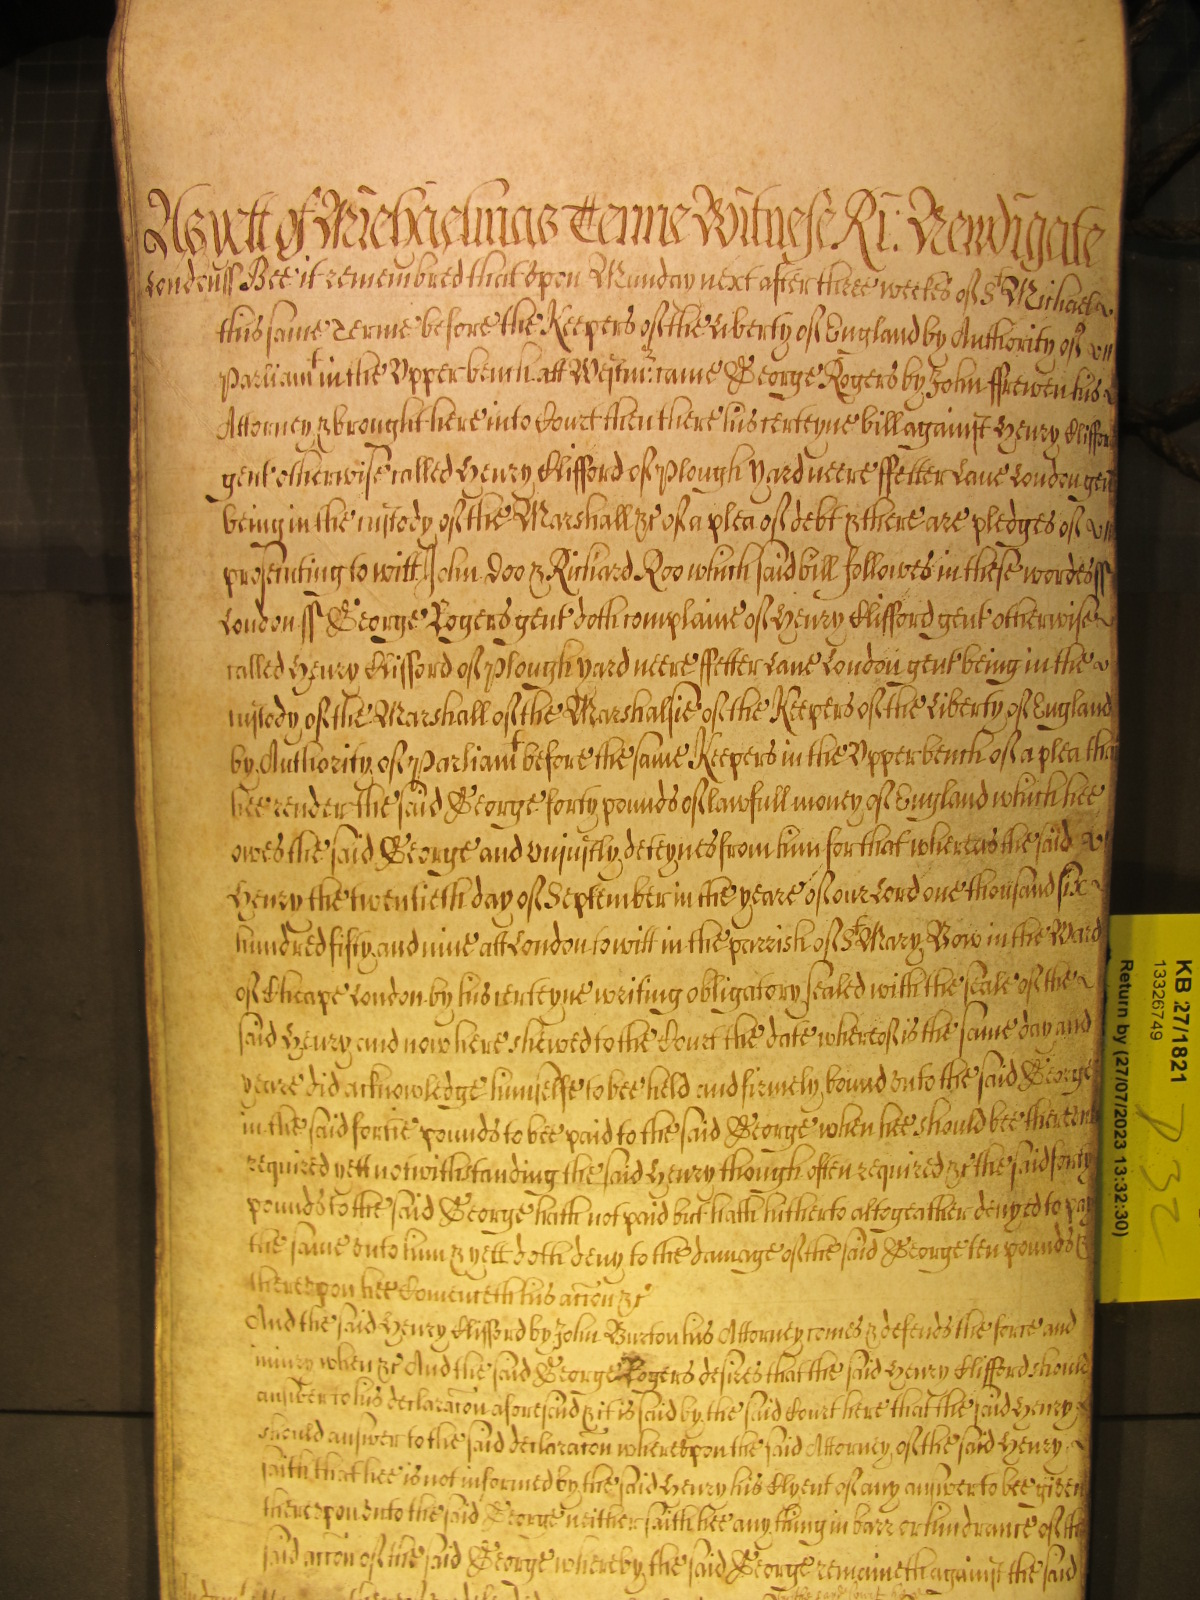 As yett of Michaelmas Terme Witnesse Ri: Newdigate
London ss Bee it remembred that upon Munday next after three weekes of St Michaell
this same Terme before the Keepers of the Liberty of England by Authority of
Parliamt in the Upper bench att Westmr: came George Rogers by John Ffrewen his
Attorney & brought here into Court then there his certeyne bill against Henry Clifford
gent otherwise called Henry Clifford of Plough Yard neere ffetter Lane London gent
being in the custody of the Marshall &c of a plea of debt & there are pledges of
prosecuting to witt John Doo & Richard Roo which said bill followes in these wordes ss
London ss George Rogers gent doth complaine of Henry Clifford gent otherwise
called Henry Clifford of Plough yard neere ffetter Lane London gent being in the
custody of the Marshall of the Marshalsie of the Keepers of the Liberty of England
by Authority of Parliamt before the same Keepers in the Upper bench of a plea that
hee render the said George forty pounds of lawfull money of England which hee
owes the said George and unjustly deteynes from him for that whereas the said
Henry the twentieth day of September in the yeare of our Lord one thousand six
hundred fifty and nine att London to witt in the parrish of St Mary Bow in the Ward
of Cheape London by his certeyne writing obligatory sealed with the seale of the
said Henry and now here shewed to the Court the date whereof is the same day and
yeare did acknowledge himselfe to bee held and firmely bound unto the said George
in the said fortie pounds to bee paid to the said George when hee should bee thereunto
required yett notwithstanding the said Henry though often required &c the said forty
pounds to the said George hath not paid but hath hitherto altogeather denyed to pay
the same unto him & yett doth deny to the damage of the said George ten pounds &
thereupon hee Comenceth his acion &c
And the said Henry Clifford by John Burton his Attorney comes & defends the force and
iniury when &c And the said George Rogers desires that the said Henry Clifford should
answer to his declaracon aforesaid & it is said by the said Court here that the said Henry
should answer to the said declaracon whereupon the said Attorney of the said Henry
saith that hee is not informed by the said Henry his Clyent of any answer to bee given
thereupon unto the said George neither saith hee any thing in barr or hindrance of the
said accon of the said George whereby the said George remaineth against the said
KB 27/1821
13326749
Return by (27/07/2023 13:32:30)